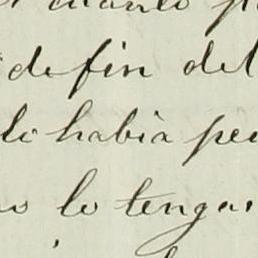 cuanto
de fin del
le habia
lo tengas